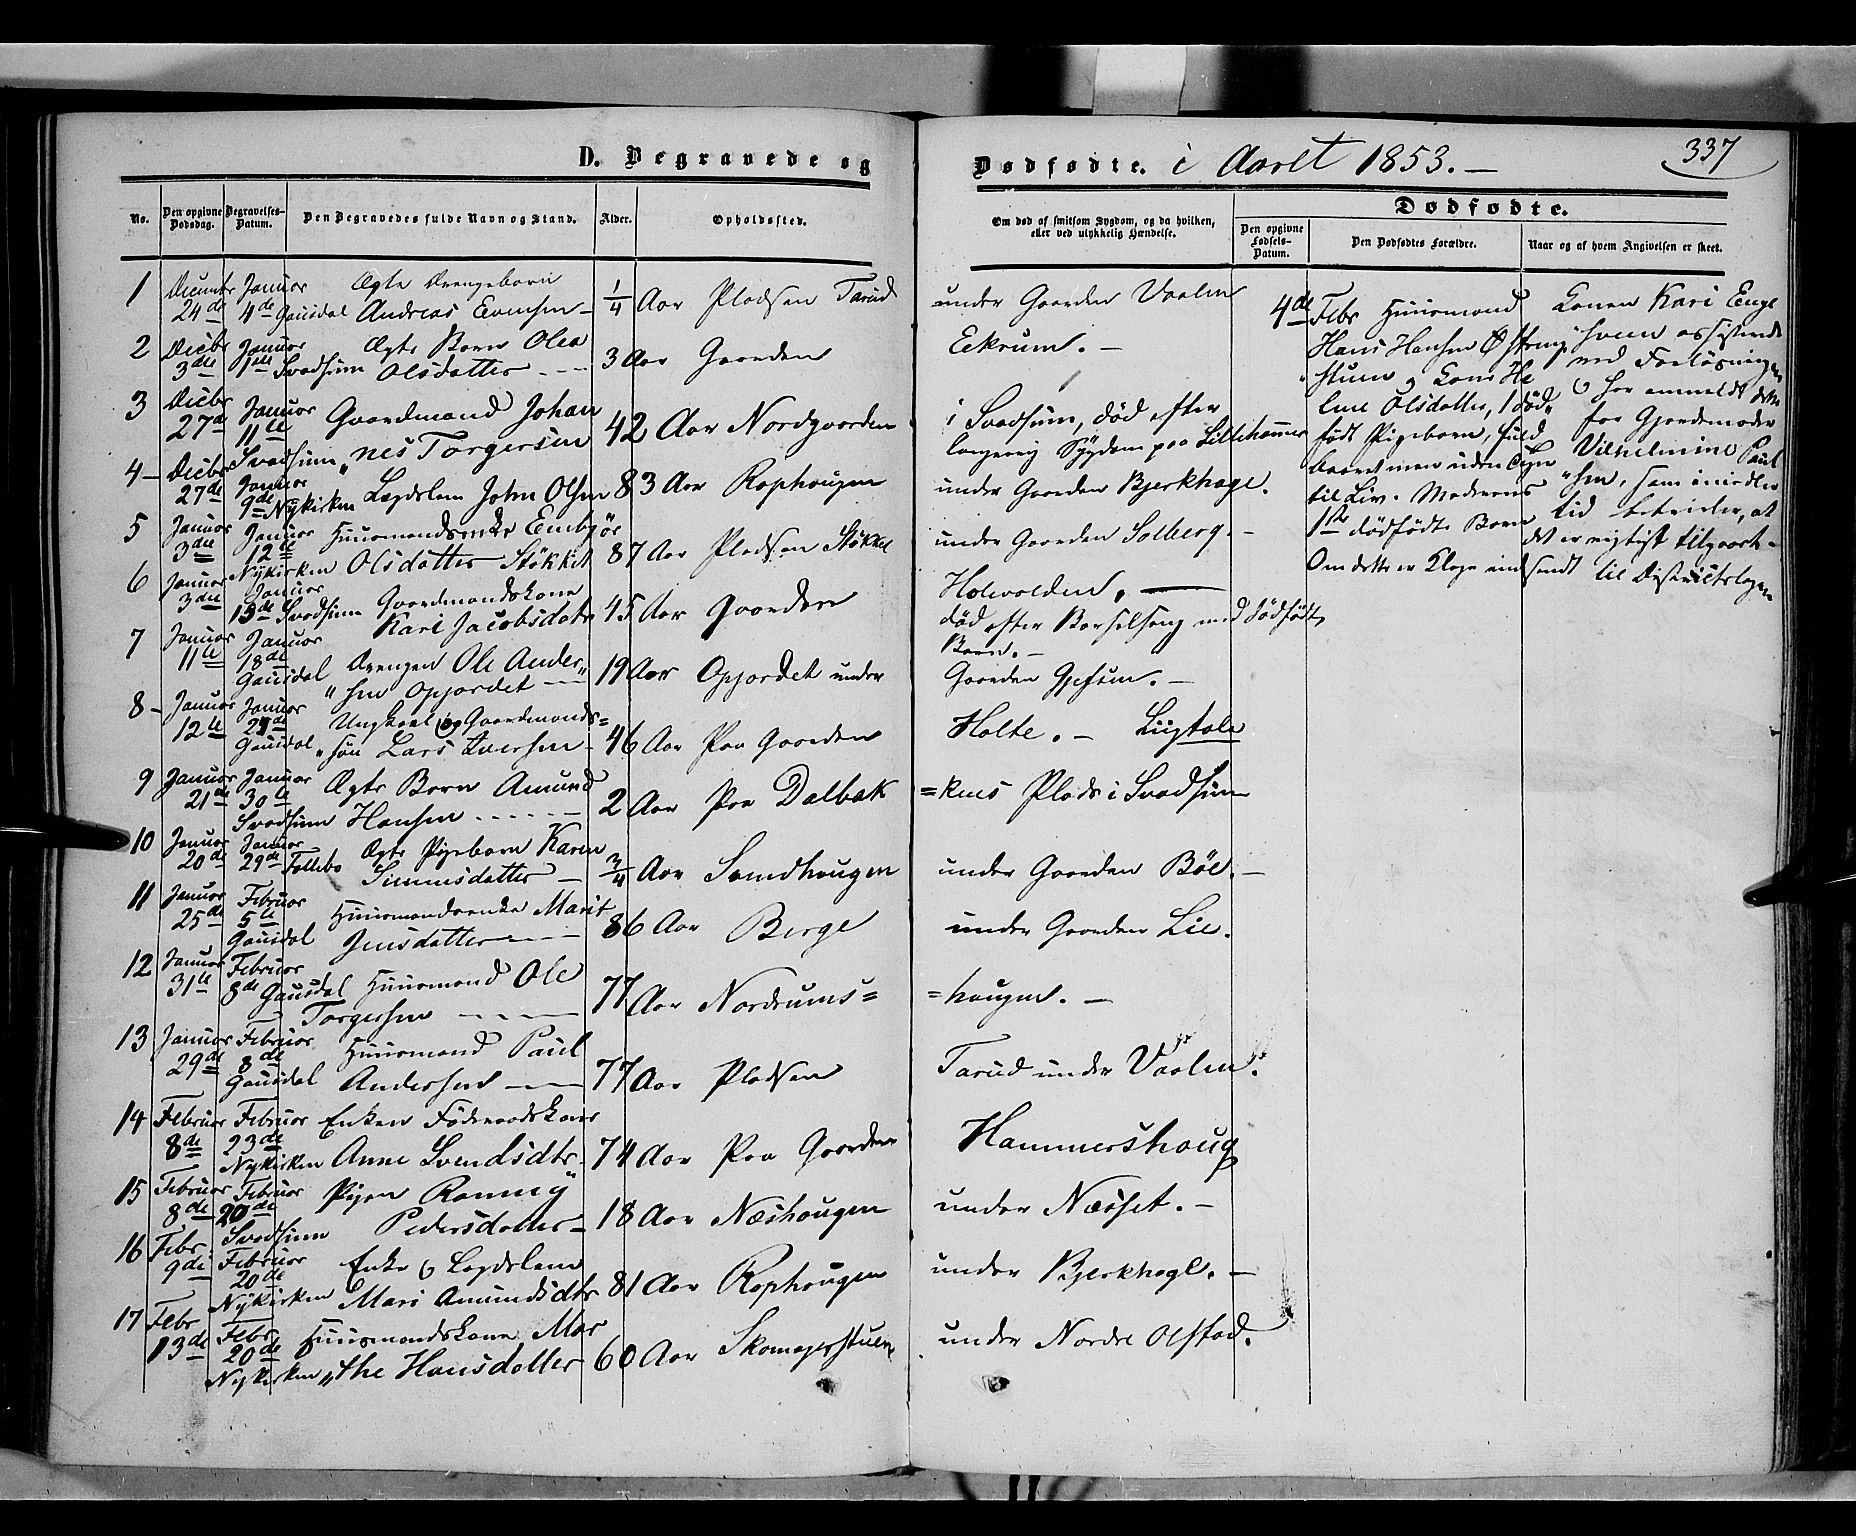 D. Begravede og Dødfødte. i Aaret 1853. –
337
No. Den opgivne Dødsdag. Begravelses-Datum. Den Begravedes fulde Navn og Stand. Alder. Opholdssted. Om død af smitsom Sygdom, og da hvilken, eller ved ulykkelig Hændelse.
Dødfødte.
Den opgivne Fødsels-Datum. Den Dødfødtes Forældre. Naar og af hvem Angivelsen er skeet.
1 Decemb Januar Ægte Drengebarn
24de 4de Gausdal Andreas Evensen – 1/4 Aar Pladsen Tarud under Gaarden Vaalen
2 Decbr Januar Ægte Barn Olea
3die 1ste Svadsum Olsdatter – 3 Aar Gaarden Eekrum. –
3 Decbr Januar Gaardmand Johan
27de 11te Svadsum nes Torgersen 42 Aar Nordgaarden i Svadsum, død efter
langvarig Sygdom paa Lillehammer
4 – Decbr Januar
27de 9de Nykirken Lægdslem John Olsen 83 Aar Raphougen under Gaarden Bjerkhage.
5 Januar Januar Huusmandsenke Embjør
3die 12te Nykirken Olsdatter Støkket 87 Aar Pladsen Støkket under Gaarden Solberg. –
6 Januar Januar Gaardmandskone
3die 13de Svadsum Kari Jacobsdatr 45 Aar Gaarden Holevolden. –
død efter Barselseng med dødfødt
Barn. –
7 Januar Januar
11te 18de Gausdal Drengen Ole Ander„
„sen Opjordet – 19 Aar Opjordet under Gaarden Gjefsen. –
8 – Januar Januar Ungkarl og Gaardmands=
12te Gausdal „søn Lars Iversen – 46 Aar Paa Gaarden Holte. – Liigtale
9 Januar Januar Ægte Barn Amund
21de 30te Svadsum Hansen – 2 Aar Paa Dalbak =kens Plads i Svadsum
10 Januar Januar Ægte Pigebarn Karen
20de 29de Follebo Simensdatter – 3/4 Aar Sandhougen under Gaarden Böe. –
11 Januar Februar Huusmandsenke Marit
25de 5te Gausdal Jensdatter – 86 Aar Berge under Gaarden Lie.
12 Januar Februar
31te 8de Gausdal Huusmand Ole
Torgersen – 77 Aar Nordrums= =hougen. –
13 Januar Februar Huusmand Paul
29de 8de Gausdal Andersen – 77 Aar Pladsen Tarud under Vaalen.
14 Februar Februar Enken Föderaadskone
8de 23de Nykirken Anne Svendsdtr 74 Aar Paa Gaarden Hammershoug
15 Februar Februar Pigen Ronnig
8de 20de Svadsum Pedersdatter – 18 Aar Næshougen under Næsset. –
16 Febr. Februar Enke og Lægdslem
9de 20de Nykirken Mari Amundsdtr 81 Aar Raphougen under Bjerkhage. –
17 Febr Febr. Huusmandskone Mar
13de 20de Nykirken „the Hansdatter 60 Aar Skomagerstuen under Nordre Olstad.
4de Febr Huusmand
Hans Hansen Østeng„
„stuen og Kone He
lene Olsdatter, 1 död„
født Pigebarn, fuld
baaret men uden Tegn
til Liv. Moderens
1ste dödfödte Barn
Om dette er Klage indsendt til Districtslægen
Konen Kari Enge
„sveen assisterede
ved Forløsningen
og har anmeldt dette
for Gjordemoder
Vilhelmine Paul
„sen, som imidler
tid betvivler, at
det er rigtigt tilgaaet. –